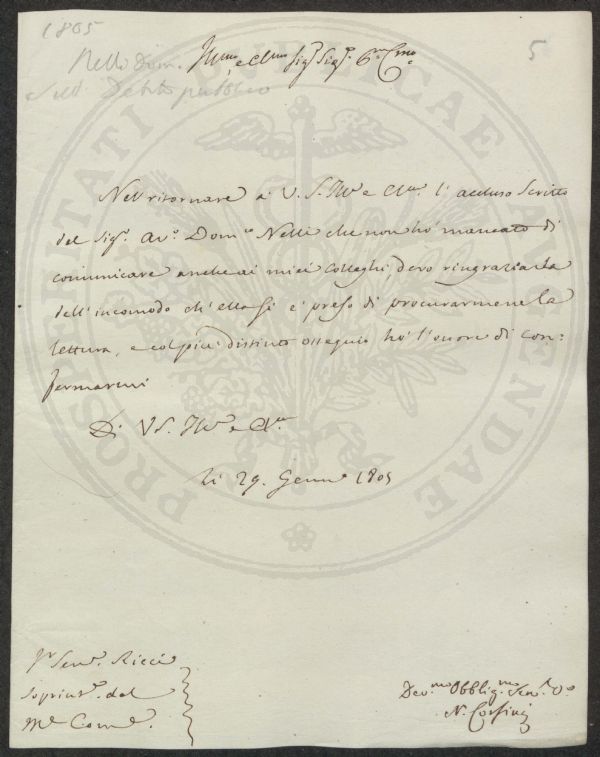 1805
5
Nelli Dom.
sul Debito pubblico
Illmo e Clmo Sigr Sigr Pne Cmo
PROSPERITATI PUBLICAE AUGENDAE
Nel ritornare a V. S. Illa e Clma l'accluso Scritto
del Sigr Avo Domco Nelli che non hò mancato di
comunicare anche ai miei Colleghi, devo ringraziarla
dell'incomodo ch'ella si è preso di procurarmene la
lettura, e col più distinto ossequio hò l'onore di con=
fermarmi
Di VS. Illa e Cla
li 29. Genno 1805
Senre Ricci
Soprintte del
Devmo Obbligmo Senre
N. Corsini